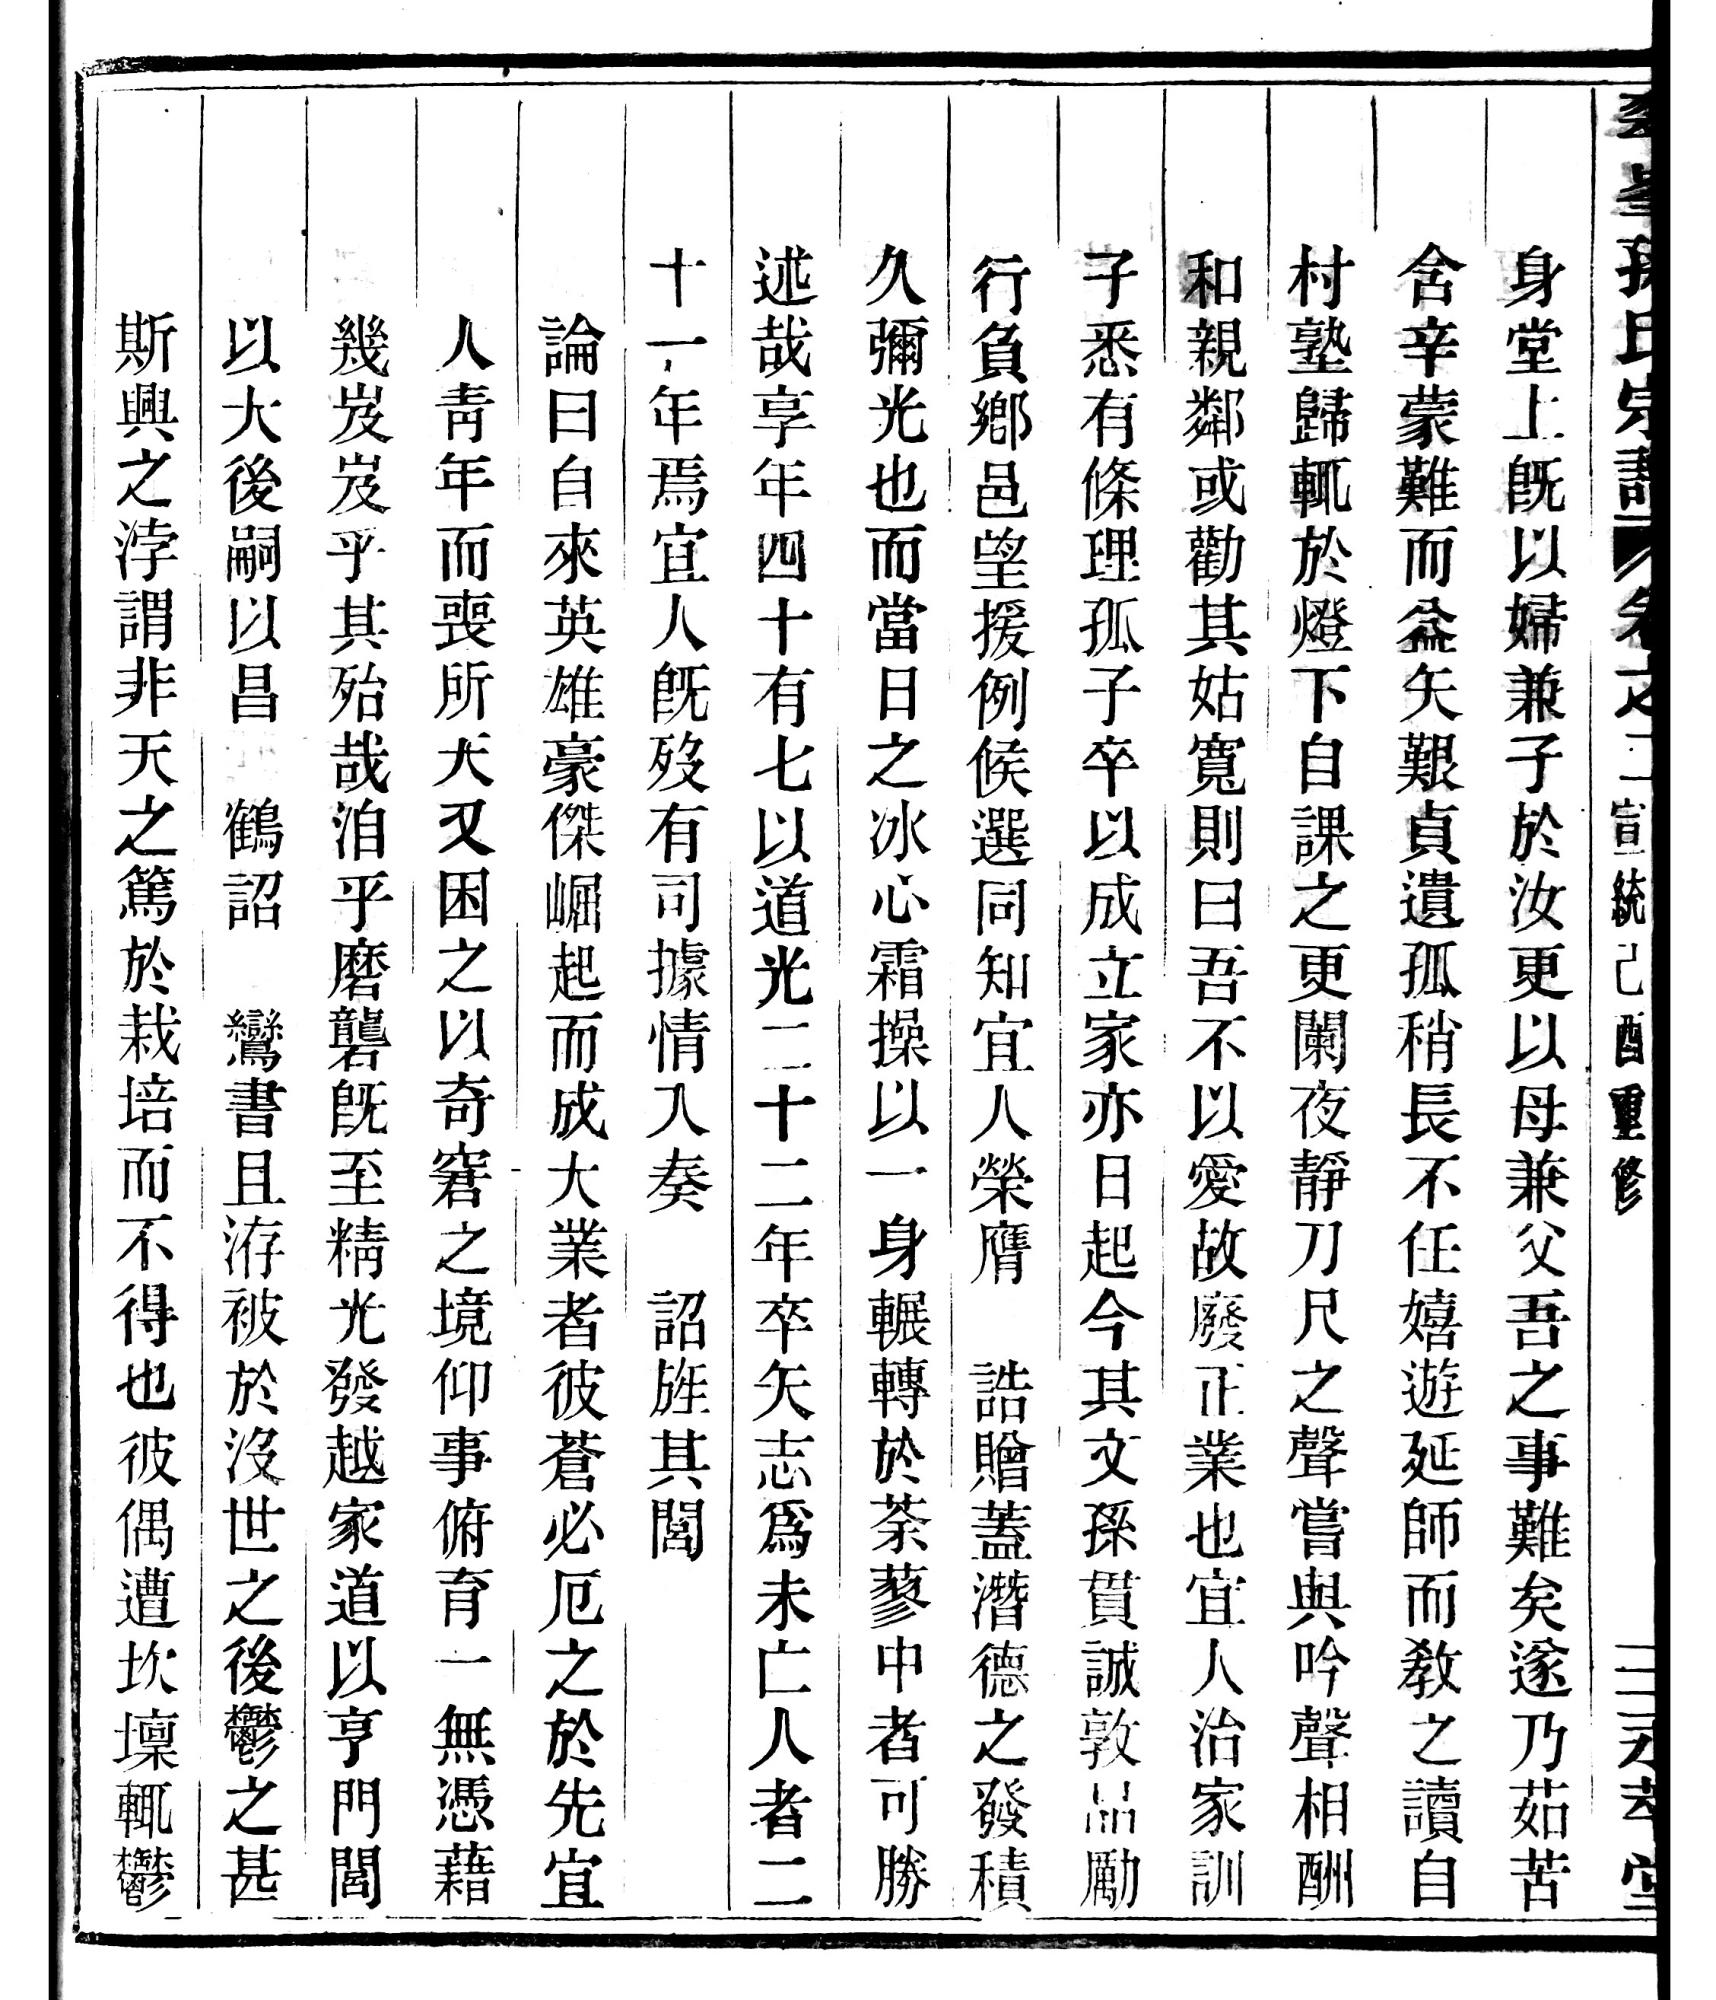 孫氏宗譜 卷之二 宣統己酉重修
身堂上旣以婦兼子於汝更以母兼父吾之事難矣遂乃茹苦
含辛蒙難而益矢艱貞遺孤稍長不任嬉遊延師而教之讀自
村塾歸輒於燈下自課之更闌夜靜刀尺之聲嘗與吟聲相酬
和親鄰或勸其姑寬則曰吾不以愛故廢正業也宜人治家訓
子悉有條理孤子卒以成立家亦日起今其文孫貫誠敦品勵
行負鄉邑望援例候選同知宜人榮膺 誥贈蓋潛德之發積
久彌光也而當日之冰心霜操以一身輾轉於荼蓼中者可勝
述哉享年四十有七以道光二十二年卒矢志爲未亡人者二
十一年焉宜人旣歿有司據情入奏 詔旌其閭
論曰自來英雄豪傑崛起而成大業者彼蒼必厄之於先宜
人靑年而喪所天又困之以奇窘之境仰事俯育一無憑藉
幾岌岌乎其殆哉洎乎磨礱旣至精光發越家道以亨門閭
以大後嗣以昌 鶴詔 鸞書且洊被於沒世之後鬱之甚
斯興之浡謂非天之篤於栽培而不得也彼偶遭坎壈輒鬱